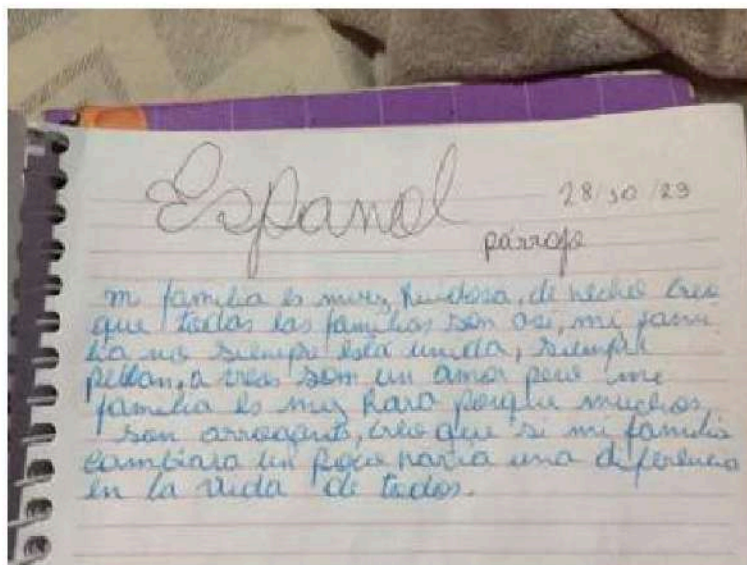 Espanol
28/10/23
párrafo
mi familia es muy ruidosa, de hecho creo
que todas las familias son así, mi fami
lia no siempre está unida, siempre
pelean, a veces som un amor pero mi
familia es muy rara porque muchos
son arrogantes, creo que si mi familia
cambiara un poco haria una diferencia
en la vida de todos.